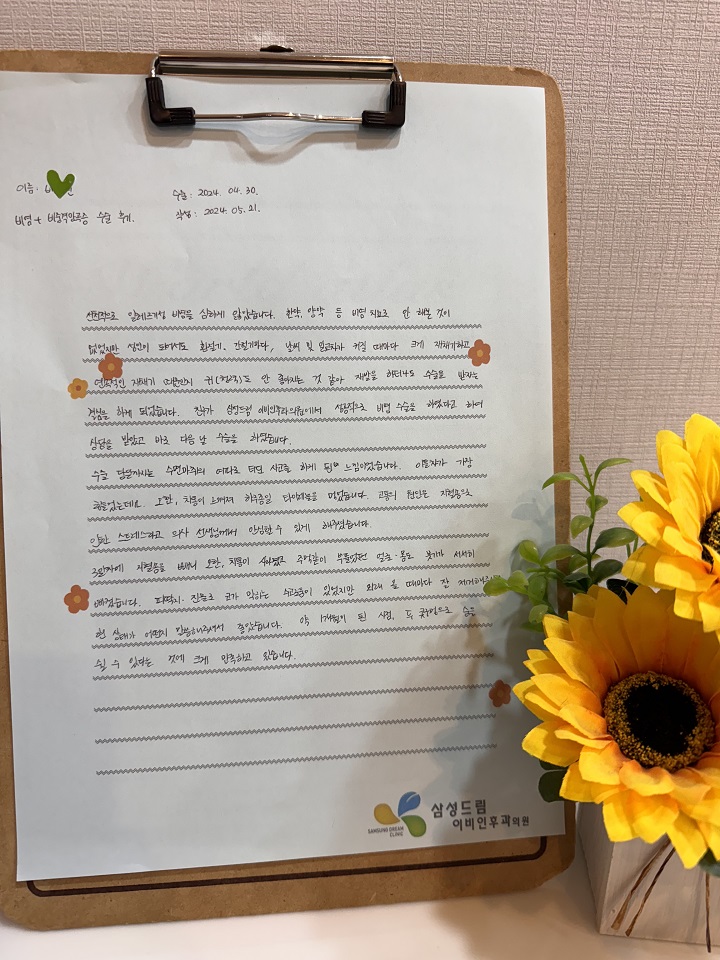 이름:
수술: 2024. 04. 30.
비염 + 비중격만곡증 수술 후기.
작성: 2024. 05. 21.
선천적으로 알레르기성 비염을 심하게 앓았습니다. 한약, 양약 등 비염 치료로 안 해본 것이
없었지만 성인이 되어서도 환절기, 간절기마다, 날씨 및 일교차가 커질 때마다 크게 재채기하고
연속적인 재채기 때문인지 귀(청력)도 안 좋아지는 것 같아 재발을 하더라도 수술을 받자는
결심을 하게 되었습니다. 친구가 삼성드림 이비인후과의원에서 성공적으로 비염 수술을 하였다고 하여
상담을 받았고 바로 다음 날 수술을 하였습니다.
수술 당일까지는 수면마취의 여파로 터진 사고를 하게 된 느낌이었습니다. 이튿차가 가장
힘들었는데요. 오한, 치통이 느껴져 하루종일 타이레놀을 먹었습니다. 고통의 원인은 지혈솜으로
인한 스트레스라고 의사 선생님께서 안심할 수 있게 해주셨습니다.
3일차에 지혈솜을 빼니 오한, 치통이 사라졌고 주먹같이 부풀었던 얼굴·몸도 붓기가 서서히
빠졌습니다. 피딱지·진물로 코가 막히는 수고로움이 있었지만 외래 올 때마다 잘 제거해주시고
현 상태가 어떤지 말씀해주셔서 좋았습니다. 약 1개월이 된 시점, 두 콧구멍으로 숨을
쉴 수 있다는 것에 크게 만족하고 있습니다.
SAMSUNG DREAM
CLINIC
삼성드림
이비인후과의원